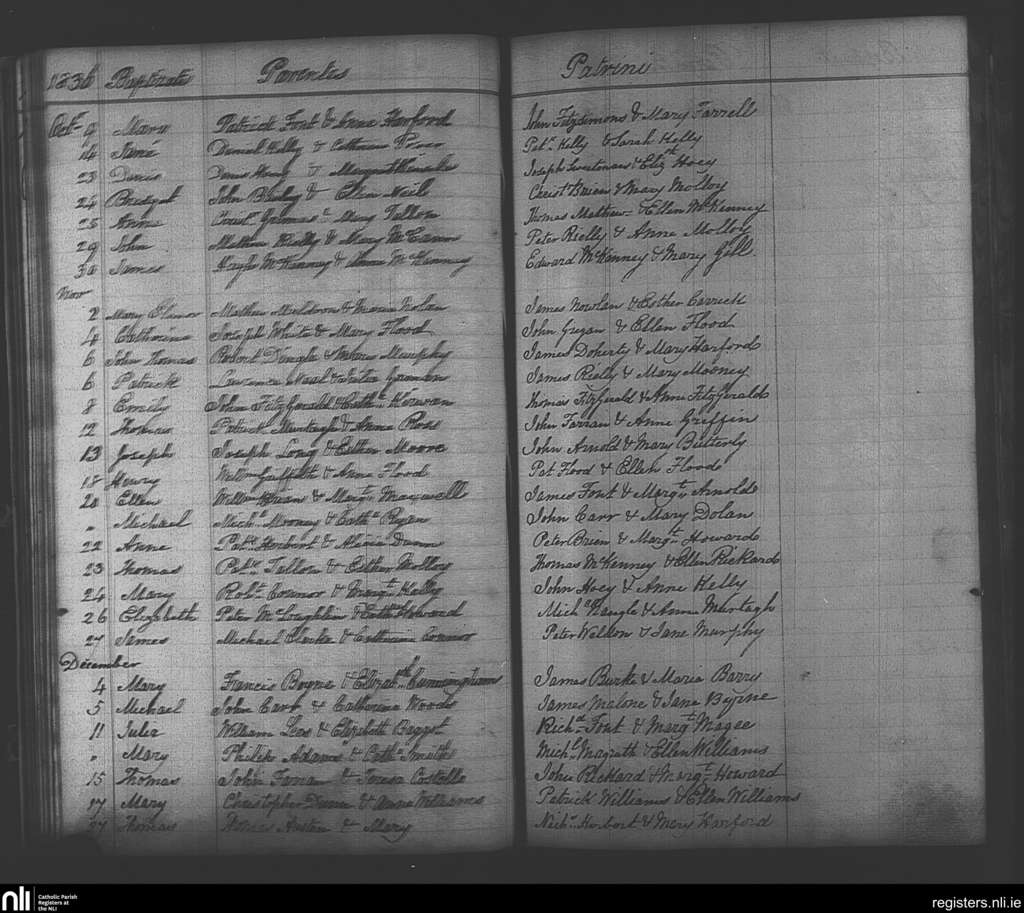 1836 Baptizatus Parentes Patrini
Oct 9 Mary Patrick Font & Anne Harford John Fitzsimons & Mary Farrell
14 Jane Daniel Kelly & Catherine Pat. Kelly & Sarah Kelly
23 Denis Denis & Margaret Joseph & Eliz Hoey
24 Bridget John & Ellen Neile Christ Brien & Mary Molloy
25 Anne Christ. & Mary Tallon Thomas Mathew & Ellen McKenney
29 John Matthew Rielly & Mary McCann Peter Rielly & Anne Molloy
30 James McKenney & Anne McKenney Edward McKenney & Mary Gill
Nov
2 Mary Elinor Mathew Muldron & Maria Nolan James Nowlan & Esther Carrick
4 Catherine Joseph White & Mary Flood John Grugan & Ellen Flood
6 John Thomas Robert & Maria Murphy James Doherty & Mary Harford
6 Patrick Lawrence & James Rielly & Mary Mooney
8 Emily John FitzGerald & Cath. Thomas FitzGerald & Anne FitzGerald
12 Thomas Patrick Murtagh & Anne Ross John Farran & Anne Griffin
13 Joseph Joseph Long & Esther Moore John Arnold & Mary Butterly
18 Henry William Griffith & Anne Flood Pat Flood & Ellen Flood
20 Ellen William & Margt. Maxwell James Font & Margt. Arnold
" Michael Mich. Mooney & Cath. Ryan John Carr & Mary Dolan
22 Anne Patk. Herbert & Maria Dunn Peter Brien & Margt. Howard
23 Thomas Patk. Tallon & Esther Molloy Thomas McKenney & Ellen Rickard
24 Mary Robt. Connor & Margt. Kelly John Hoey & Anne Kelly
26 Elizabeth Peter McLoughlin & Cath Howard Mich. Nangle & Anne Murtagh
27 James Michael Clarke & Catherine Connor Peter Weldon & Jane Murphy
December
4 Mary Francis Byrne & Elizabth Cunningham James Burke & Maria Barry
5 Michael John Carr & Catherine Woods James Malone & Jane Byrne
11 Julia William Lees & Elizabeth Baggot Richd. Font & Margt. Magee
" Mary Philip Adams & Cath. Smith Michl. Magrath & Ellen Williams
15 Thomas John & Teresa Costello John Rickard & Margt. Howard
17 Mary Christopher Dunn & Anne Williams Patrick Williams & Ellen Williams
27 Thomas Thomas Austin & Mary Nichs. Herbert & Mary Harford
nli Catholic Parish
Registers at
the NLI
registers.nli.ie